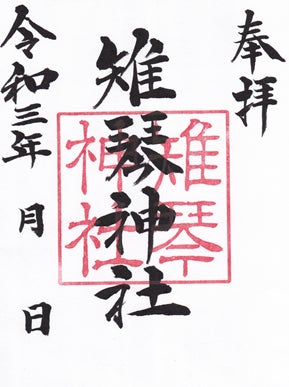 奉拝
雉琴神社
雉琴
神社
令和三年 月 日